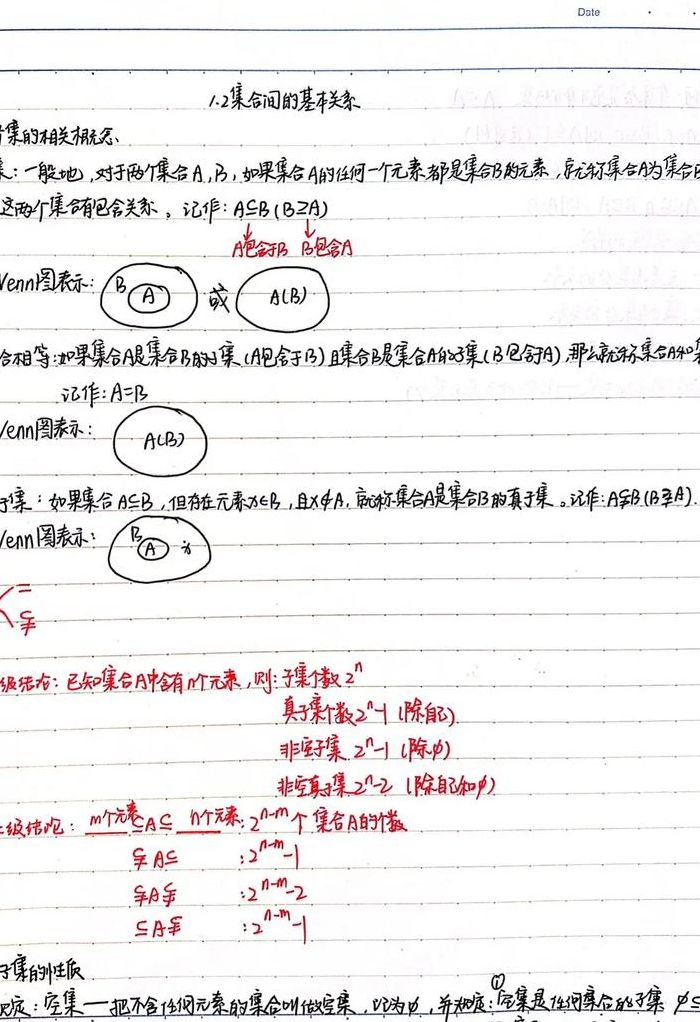 Date
1.2集合间的基本关系
子集的相关概念
集：一般地，对于两个集合A,B,如果集合A的任何一个元素都是集合B的元素，就称集合A为集合B
这两个集合有包含关系。记作：A⊆B(B⊇A)
A包含于B B包含A
Venn图表示： B A 或 A(B)
合相等：如果集合A是集合B的子集(A包含于B)且集合B是集合A的子集(B包含于A),那么就称集合A和集
记作：A=B
Venn图表示： A(B)
子集：如果集合A⊆B,但存在元素x∈B,且x∉A,就称集合A是集合B的真子集。记作：A⫋B(B⫌A).
Venn图表示： B A x
=
⫋
级结论：已知集合A中含有n个元素,则：子集个数2ⁿ
真子集个数2ⁿ-1(除自己)
非空子集 2ⁿ-1 (除φ)
非空真子集 2ⁿ-2 (除自己和φ)
级结论： m个元素⊆A⊆ n个元素：2ⁿ⁻ᵐ个 集合A的个数
⫋A⊆ ：2ⁿ⁻ᵐ-1
⫋A⫋ ：2ⁿ⁻ᵐ-2
⊆A⫋ ：2ⁿ⁻ᵐ-1
子集的性质
规定：空集—把不含任何元素的集合叫做空集，记为φ,并规定：①空集是任何集合的子集 φ⊆